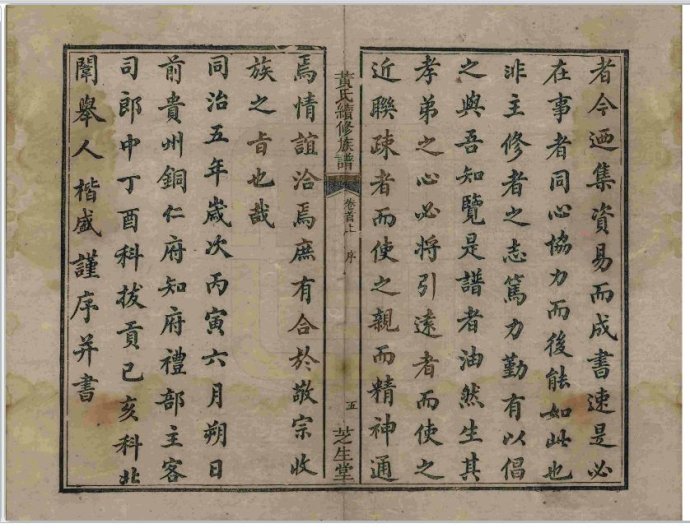 者今迺集資易而成書速是必
在事者同心協力而後能如此也
非主修者之志篤力勤有以倡
之與吾知覽是譜者油然生其
孝弟之心必將引遠者而使之
近聯疎者而使之親而精神通
黃氏續修族譜
卷首上
序
五
芝生堂
焉情誼洽焉庶有合於敬宗收
族之旨也哉
同治五年歲次丙寅六月朔日
前貴州銅仁府知府禮部主客
司郎中丁酉科拔貢己亥科北
闈舉人楷盛謹序并書